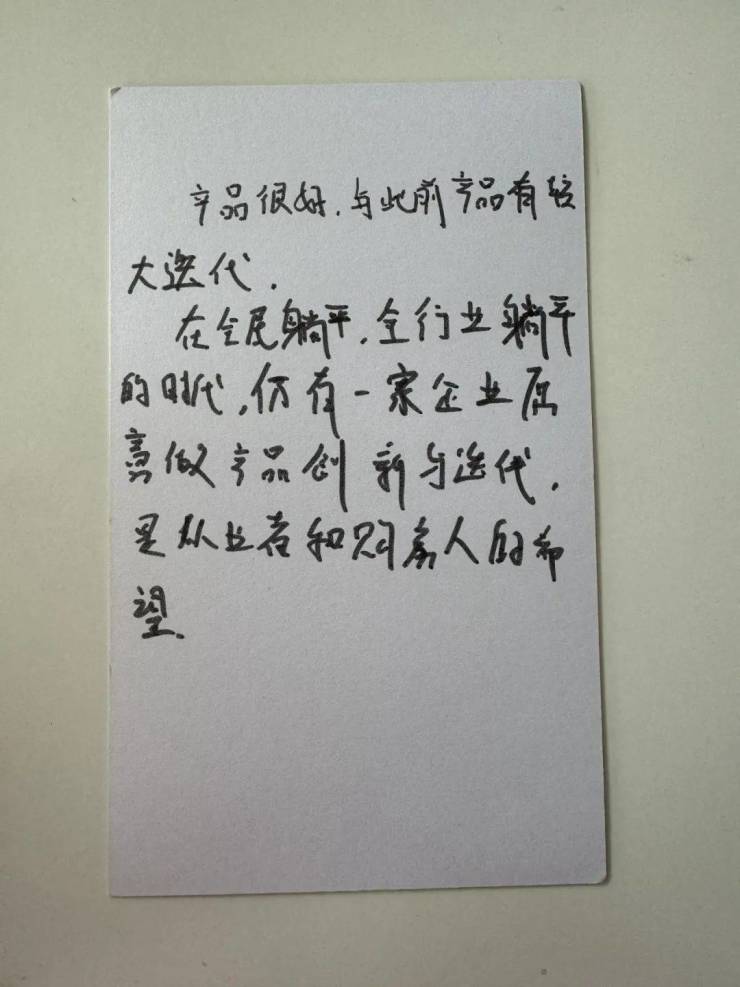 产品很好,与此前产品有较
大迭代.
在全民躺平,全行业躺平
的时代,仍有一家企业
做产品创新与迭代,
是从业者和购房人的希
望.